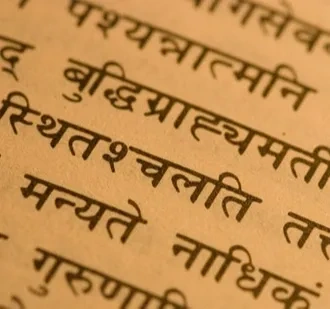 गसेव
पश्यन्नात्मनि
द् बुद्धिग्राह्यमती
स्थितश्चलति तत्त
मन्यते नाधिकं
गुरुणापि